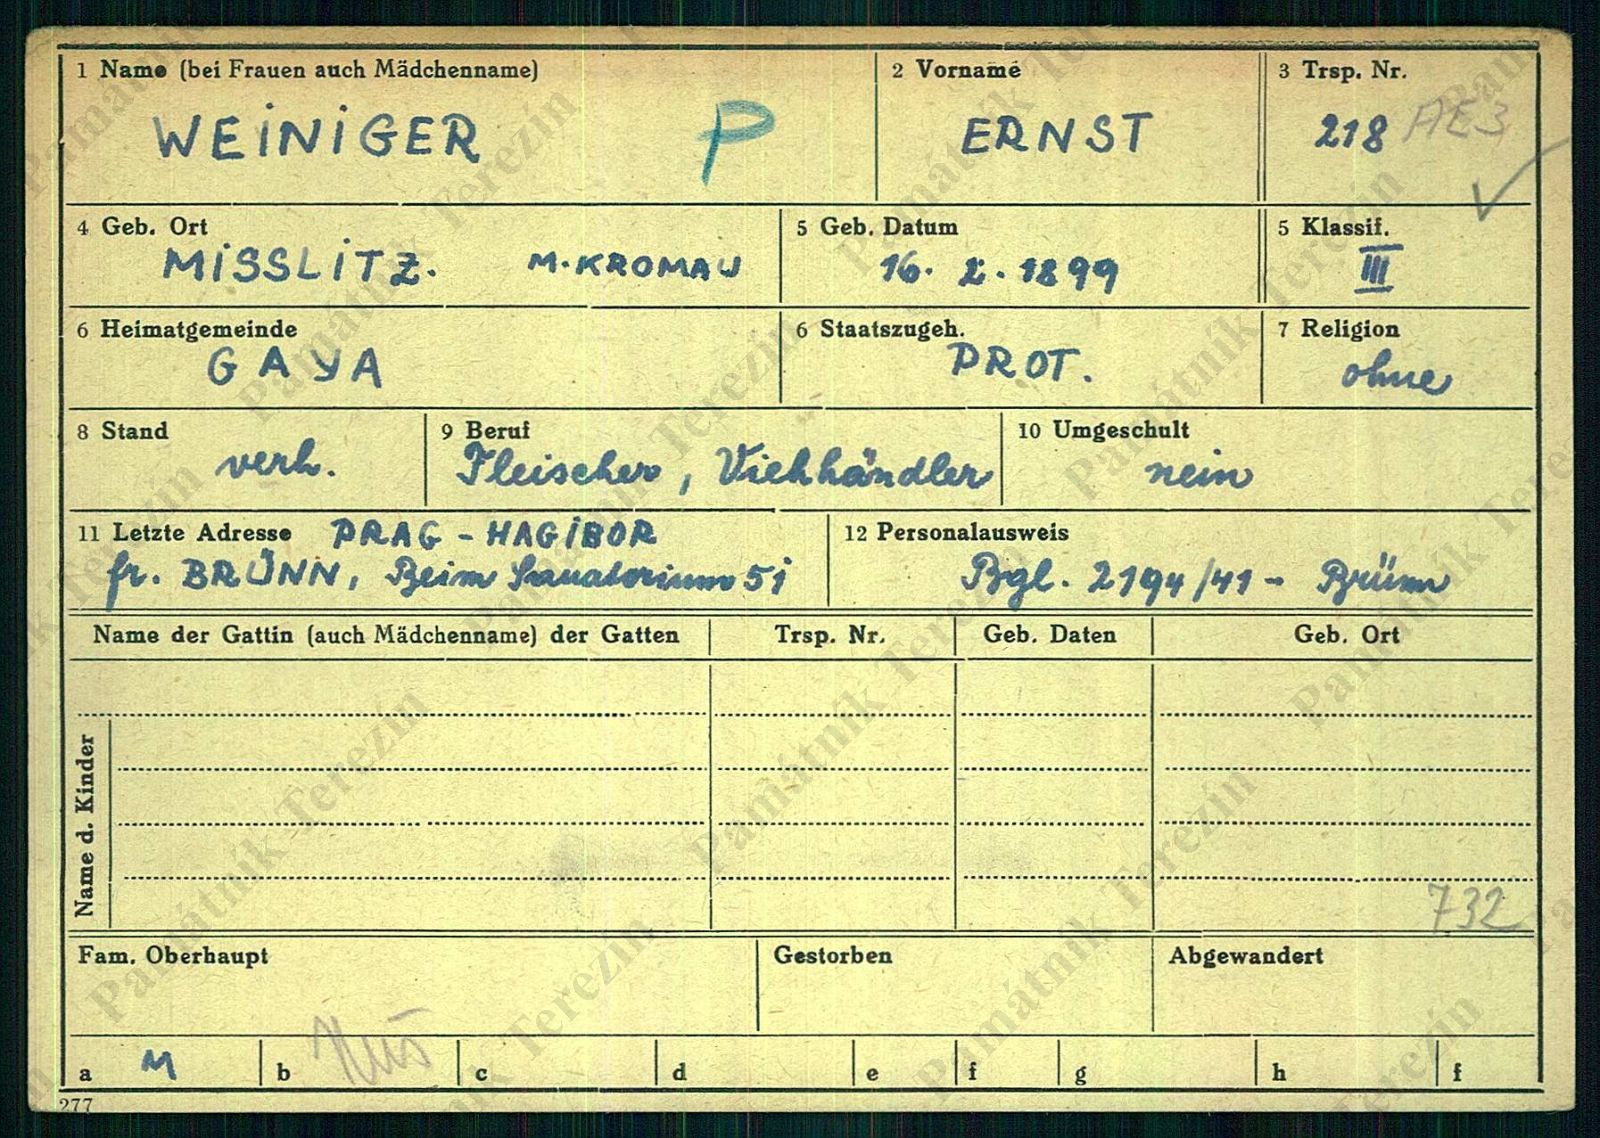 1 Name (bei Frauen auch Mädchenname)
WEINIGER P
2 Vorname
ERNST
3 Trsp. Nr.
218 AE3
4 Geb. Ort
MISSLITZ. M.KROMAU
5 Geb. Datum
16. 2. 1899
5 Klassif.
III
6 Heimatgemeinde
GAYA
6 Staatszugeh.
PROT.
7 Religion
ohne
8 Stand
verh.
9 Beruf
Fleischer, Viehhändler
10 Umgeschult
nein
11 Letzte Adresse PRAG - HAGIBOR
fr. BRÜNN, Beim Sanatorium 51
12 Personalausweis
Bgl. 2194/41 - Brünn
Name der Gattin (auch Mädchenname) der Gatten
Trsp. Nr.
Geb. Daten
Geb. Ort
Name d. Kinder
732
Fam. Oberhaupt
Gestorben
Abgewandert
a M
b
c
d
e
f
g
h
f
277
Památník Terezín